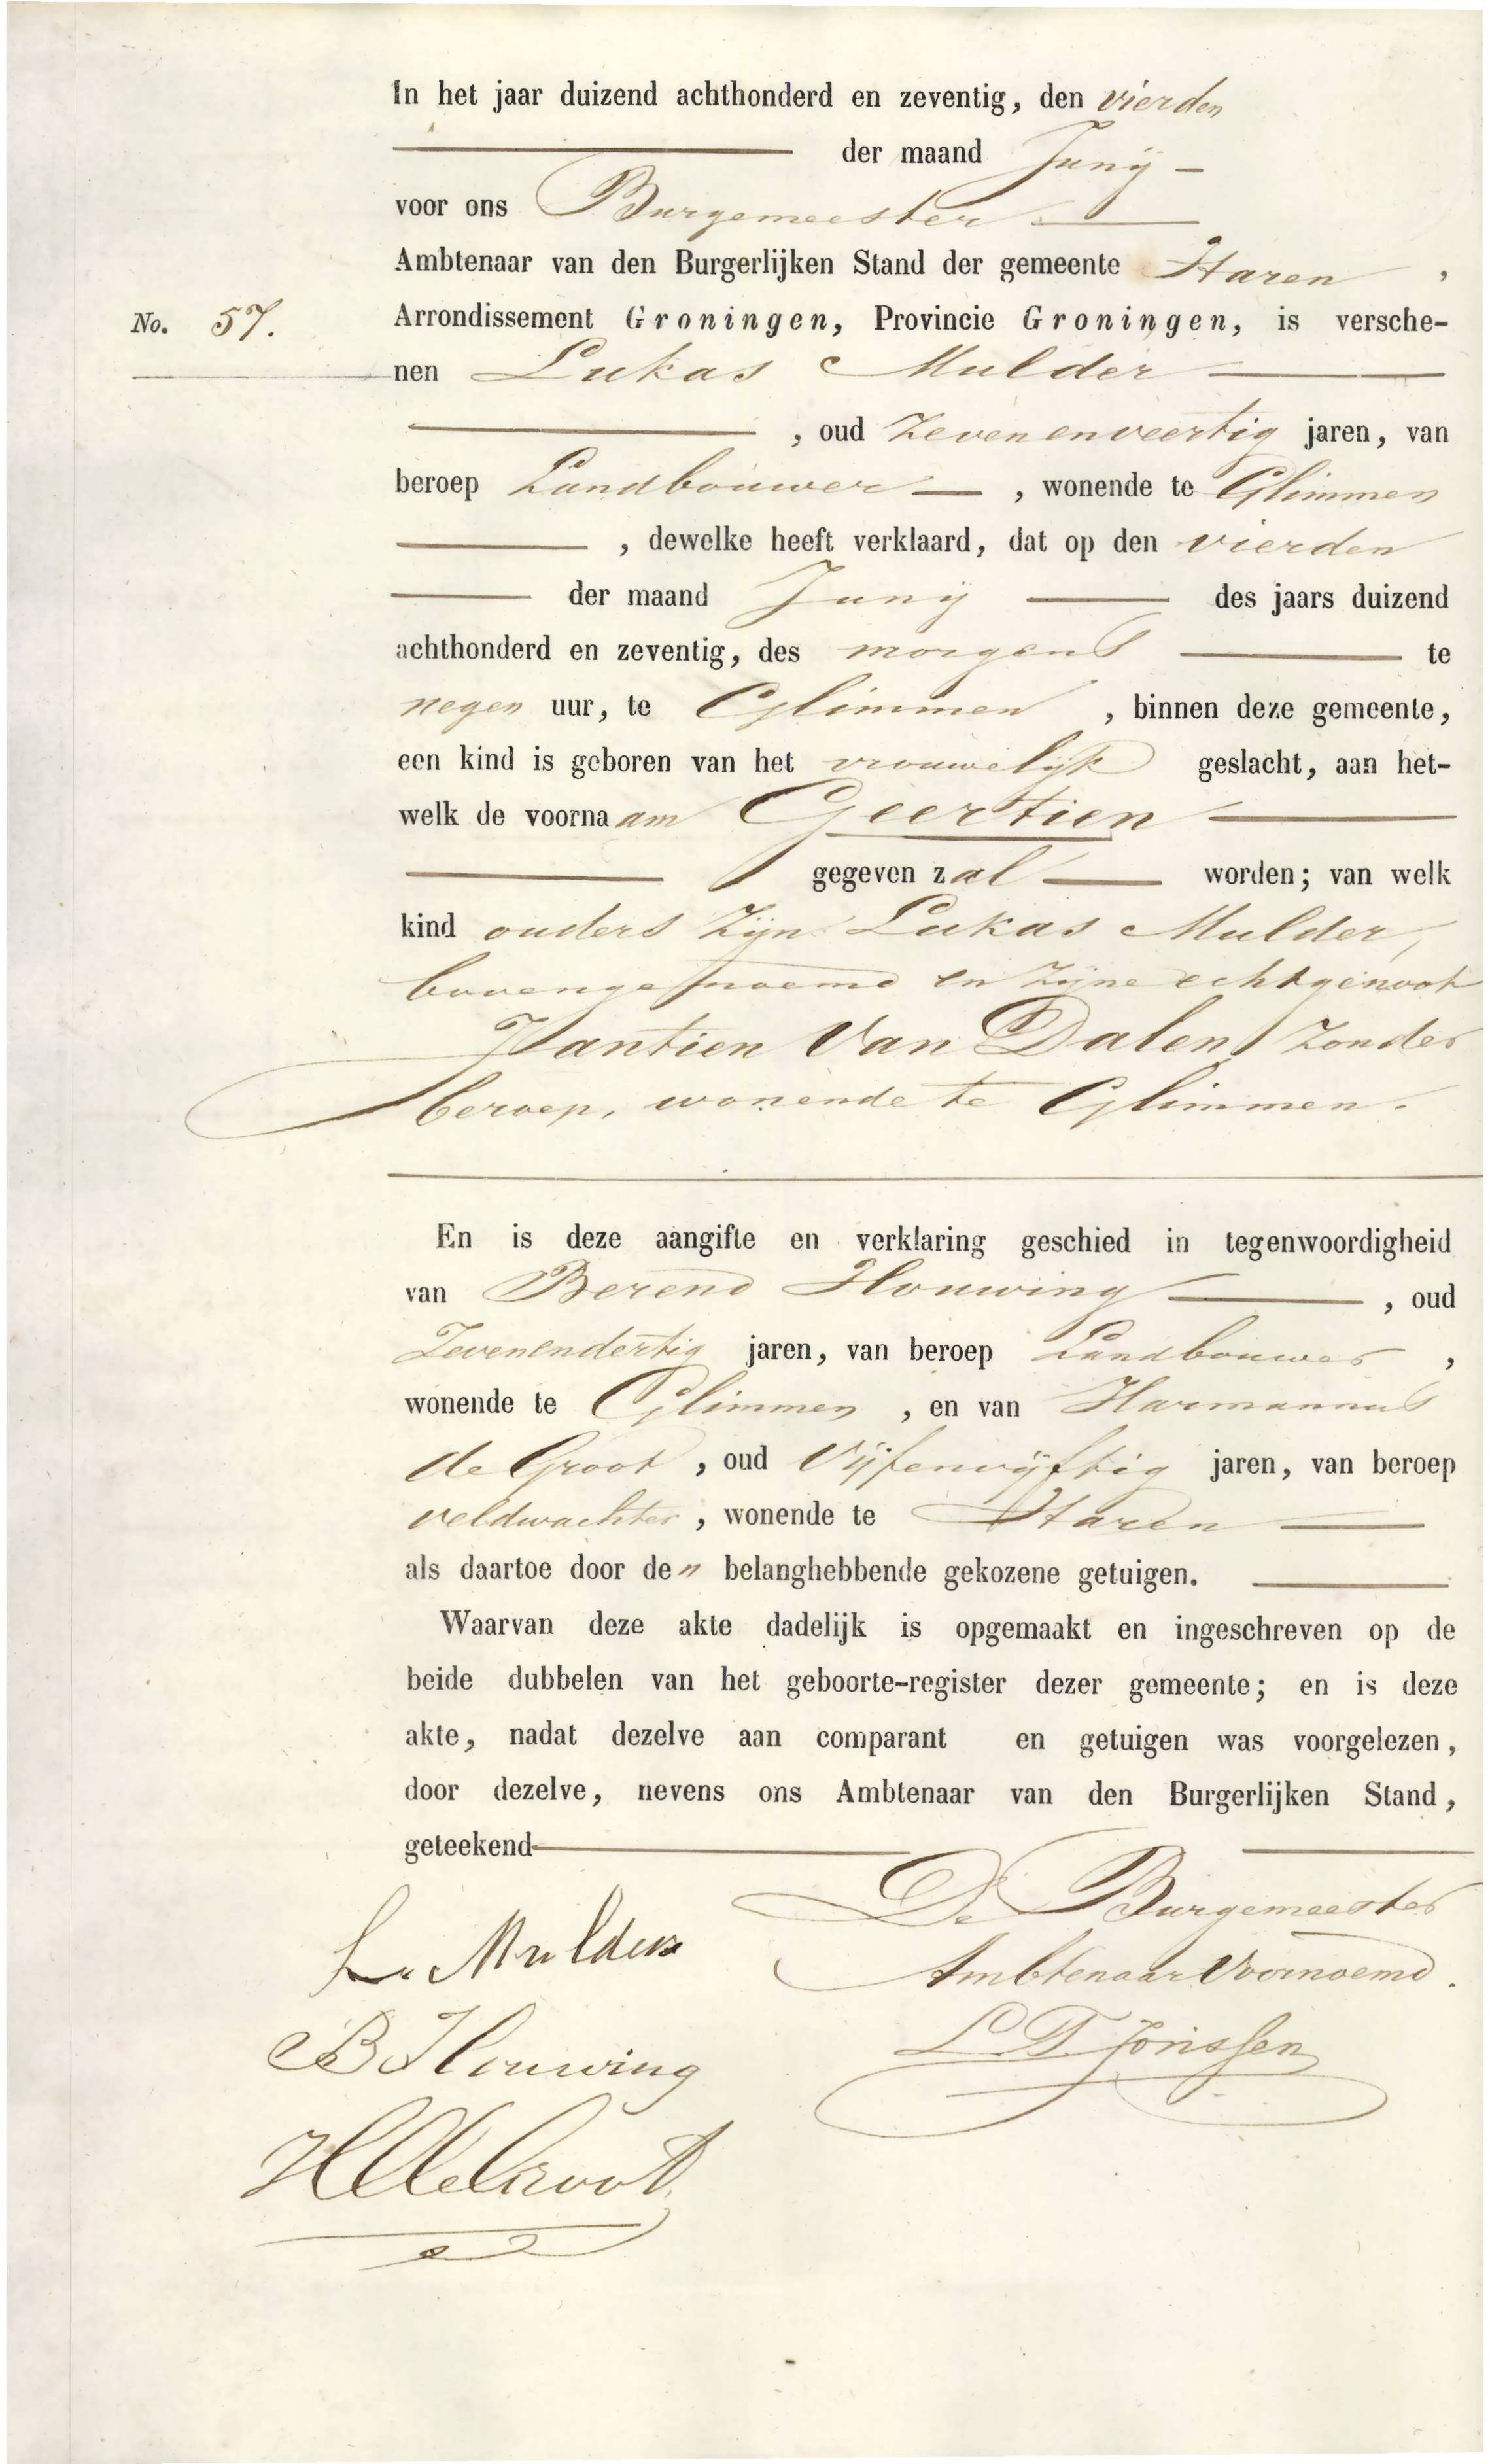 In het jaar duizend achthonderd en zeventig, den vierden
der maand Junij
voor ons Burgemeester
Ambtenaar van den Burgerlijken Stand der gemeente Haren,
No. 57. Arrondissement Groningen, Provincie Groningen, is versche-
nen Lukas Mulder
, oud Zevenenveertig jaren, van
beroep Landbouwer, wonende te Glimmen
, dewelke heeft verklaard, dat op den vierden
der maand Junij des jaars duizend
achthonderd en zeventig, des morgens te
negen uur, te Glimmen, binnen deze gemeente,
een kind is geboren van het vrouwelijk geslacht, aan het-
welk de voornaam Geertien
gegeven zal worden; van welk
kind ouders zijn Lukas Mulder,
bovengenoemd en zijne echtgenoot
Jantien Van Dalen, zonder
beroep, wonende te Glimmen.
En is deze aangifte en verklaring geschied in tegenwoordigheid
van Berend Houwing, oud
Zevenendertig jaren, van beroep Landbouwer,
wonende te Glimmen, en van Harmannus
de Groot, oud Vijfenvijftig jaren, van beroep
veldwachter, wonende te Haren
als daartoe door de " belanghebbende gekozene getuigen.
Waarvan deze akte dadelijk is opgemaakt en ingeschreven op de
beide dubbelen van het geboorte-register dezer gemeente; en is deze
akte, nadat dezelve aan comparant en getuigen was voorgelezen,
door dezelve, nevens ons Ambtenaar van den Burgerlijken Stand,
geteekend
De Burgemeester
L. Mulder
Ambtenaar Voornoemd.
B Houwing
L T Jorissen
H de Groot